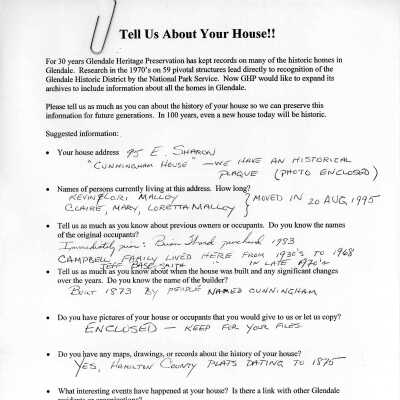 Tell Us About Your House!!
For 30 years Glendale Heritage Preservation has kept records on many of the historic homes in
Glendale. Research in the 1970's on 59 pivotal structures lead directly to recognition of the
Glendale Historic District by the National Park Service. Now GHP would like to expand its
archives to include information about all the homes in Glendale.
Please tell us as much as you can about the history of your house so we can preserve this
information for future generations. In 100 years, even a new house today will be historic.
Suggested information:
• Your house address 95 E. SHARON
"CUNNINGHAM HOUSE" - WE HAVE AN HISTORICAL
PLAQUE (PHOTO ENCLOSED)
• Names of persons currently living at this address. How long?
KEVIN & LORI MALLOY
CLAIRE, MARY, LORETTA MALLOY } MOVED IN 20 AUG, 1995
• Tell us as much as you know about previous owners or occupants. Do you know the names
of the original occupants?
Immediately prior: purchased 1983
CAMPBELL FAMILY LIVED HERE FROM 1930's TO 1968
JEFF SMITH " " IN LATE 1970's
• Tell us as much as you know about when the house was built and any significant changes
over the years. Do you know the name of the builder?
BUILT 1873 BY PEOPLE NAMED CUNNINGHAM
• Do you have pictures of your house or occupants that you would give to us or let us copy?
ENCLOSED - KEEP FOR YOUR FILES
• Do you have any maps, drawings, or records about the history of your house?
YES, HAMILTON COUNTY PLATS DATING TO 1875
• What interesting events have happened at your house? Is there a link with other Glendale
residents or organizations?